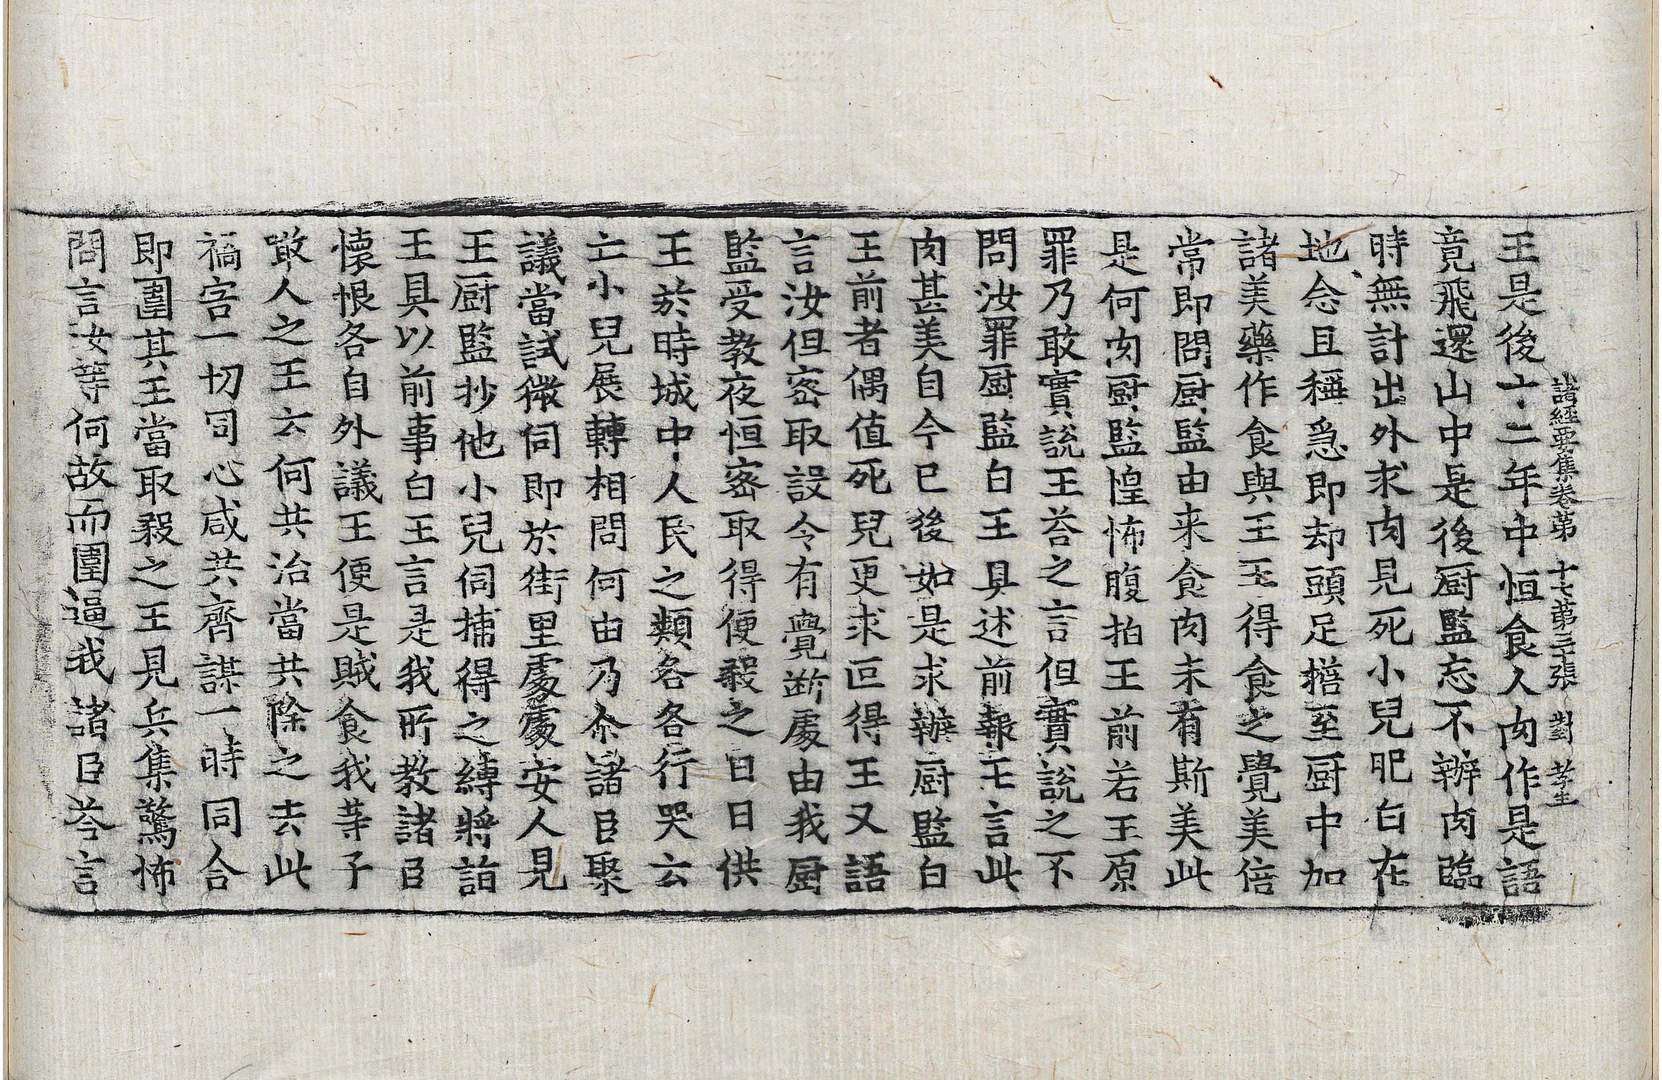 諸經要集卷第十七第三張 對 孝生
王是後十二年中恒食人肉作是語
竟飛還山中是後厨監忘不辦肉臨
時無計出外求肉見死小兒肥白在
地念且稱急即却頭足擔至厨中加
諸美藥作食與王王得食之覺美倍
常即問厨監由来食肉未有斯美此
是何肉厨監惶怖腹拍王前若王原
罪乃敢實說王荅之言但實說之不
問汝罪厨監白王具述前報王言此
肉甚美自今已後如是求辦厨監白
王前者偶值死兒更求叵得王又語
言汝但密取設令有覺斷處由我厨
監受教夜恒密取得便殺之日日供
王於時城中人民之類各各行哭云
亡小兒展轉相問何由乃尒諸臣聚
議當試微伺即於街里處處安人見
王厨監抄他小兒伺捕得之縛將詣
王具以前事白王言是我所教諸臣
懷恨各自外議王便是賊食我等子
噉人之王云何共治當共除之去此
禍害一切同心咸共齊謀一時同合
即圍其王當取殺之王見兵集驚怖
問言汝等何故而圍逼我諸臣荅言